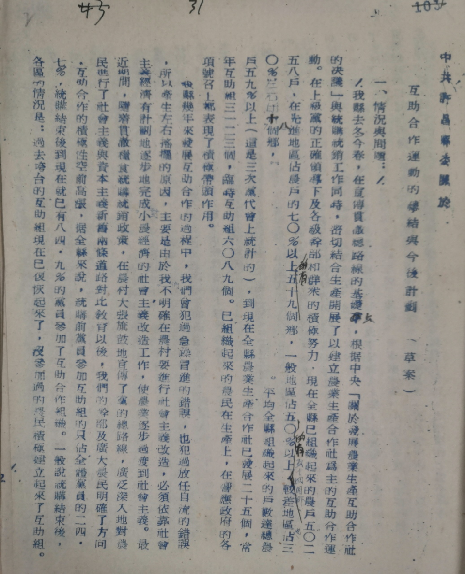 中共許昌縣委關於
互助合作運動的總結與今後計劃(草案)
一、情況與問題:
我縣去冬今春,在宣傳貫徹總路線的基礎上,根據中央「關於發展農業生產互助合作社
的決議」與統購統銷工作同時,密切結合生產開展了以建立農業生產合作社爲主的互助合作運
動。在上級黨的正確領導下及各級幹部和群衆的積極努力,現在全縣已組織起來的農戶五〇二
五八戶,在先進地區佔農戶的七〇%以上的有五十九個鄉,一般地區佔五〇%以上
平均全縣組織起來的戶數達總農
戶五九%以上(這是三次黨代會上統計的),到現在全縣農業生產合作社已發展二十五個,常
年互助組三一二三個,臨時互助組六〇八九個。已組織起來的農民在生產上,在響應政府的各
項號召上都表現了積極帶頭作用。
我縣幾年來發展互助合作的過程中,我們曾犯過急躁冒進的錯誤,也犯過放任自流的錯誤
,所以產生左右搖擺的原因,主要是由於我不明確在農村要進行社會主義改造,必須依靠社會
主義經濟有計劃地逐步地完成小農經濟的社會主義改造工作,使農業逐步過渡到社會主義。最
近期間,隨着貫徹糧食統購統銷政策,在農村大張旗鼓地宣傳了黨的總路線,廣泛深入地對農
民進行了社會主義與資本主義新舊兩條道路對比教育以後,我們的幹部及廣大農民明確了方向
,互助合作的積極性空前高漲,據全縣來說,統購前黨員參加互助組的只佔全體黨員的二四·
七%,統購結束後到現在就已有八四·九%的黨員參加了互助合作組織。一般政統購結束後,
各區的情況是:過去垮台的互助組現在已恢復起來了,沒參加過的農民積極建立起來了互助組。